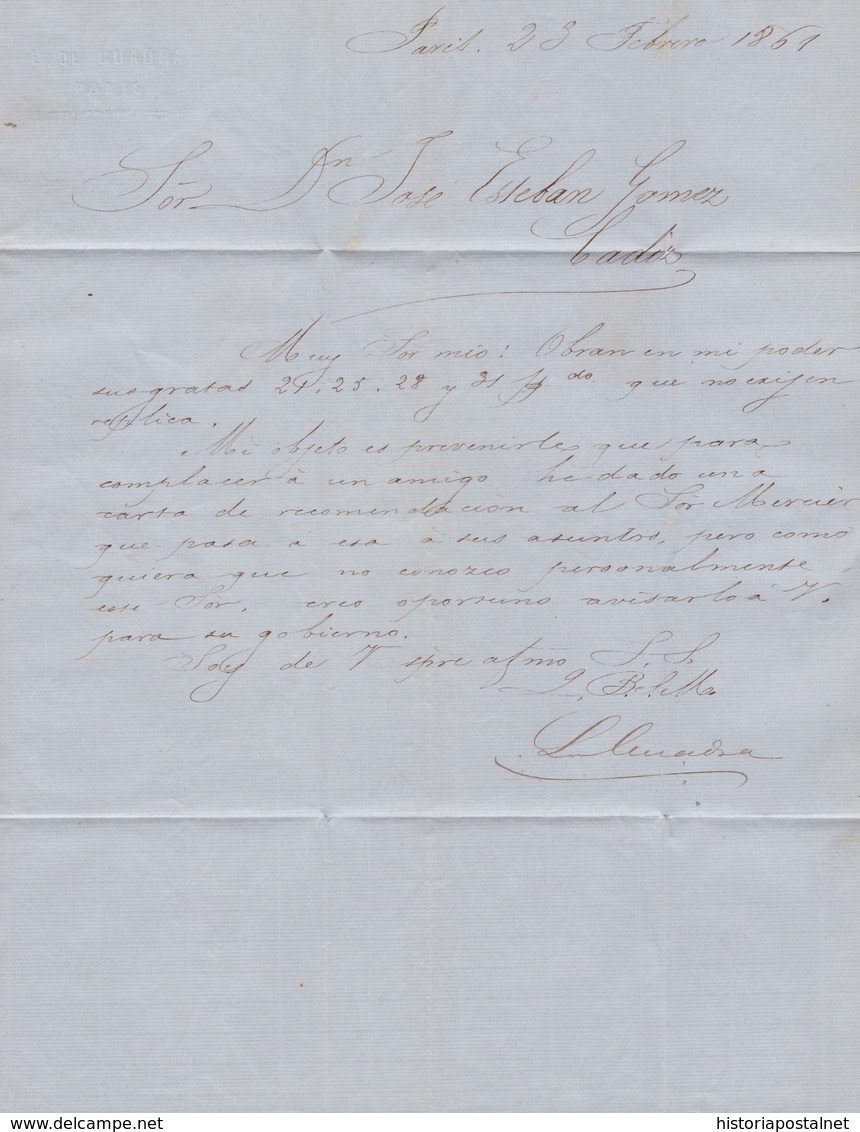 L. DE CUADRA
PARIS
Paris. 23 Febrero 1861
Sór Dn José Esteban Gomez
Cadiz
Muy Sór mio: Obran en mi poder
sus gratas 21, 25, 28 y 31 ppdo. que no exijen
replica.
Mi objeto es prevenirle que para
complacer à un amigo he dado una
carta de recomendacion al Sór Mercier
que pasa à esa à sus asuntos, pero como
quiera que no conozco personalmente
esse Sór, creo oportuno avisarlo à V.
para su gobierno.
Soy de V spre afmo S. S.
Q. B. S. M.
L. Cuadra
delcampe.net
historiapostalnet